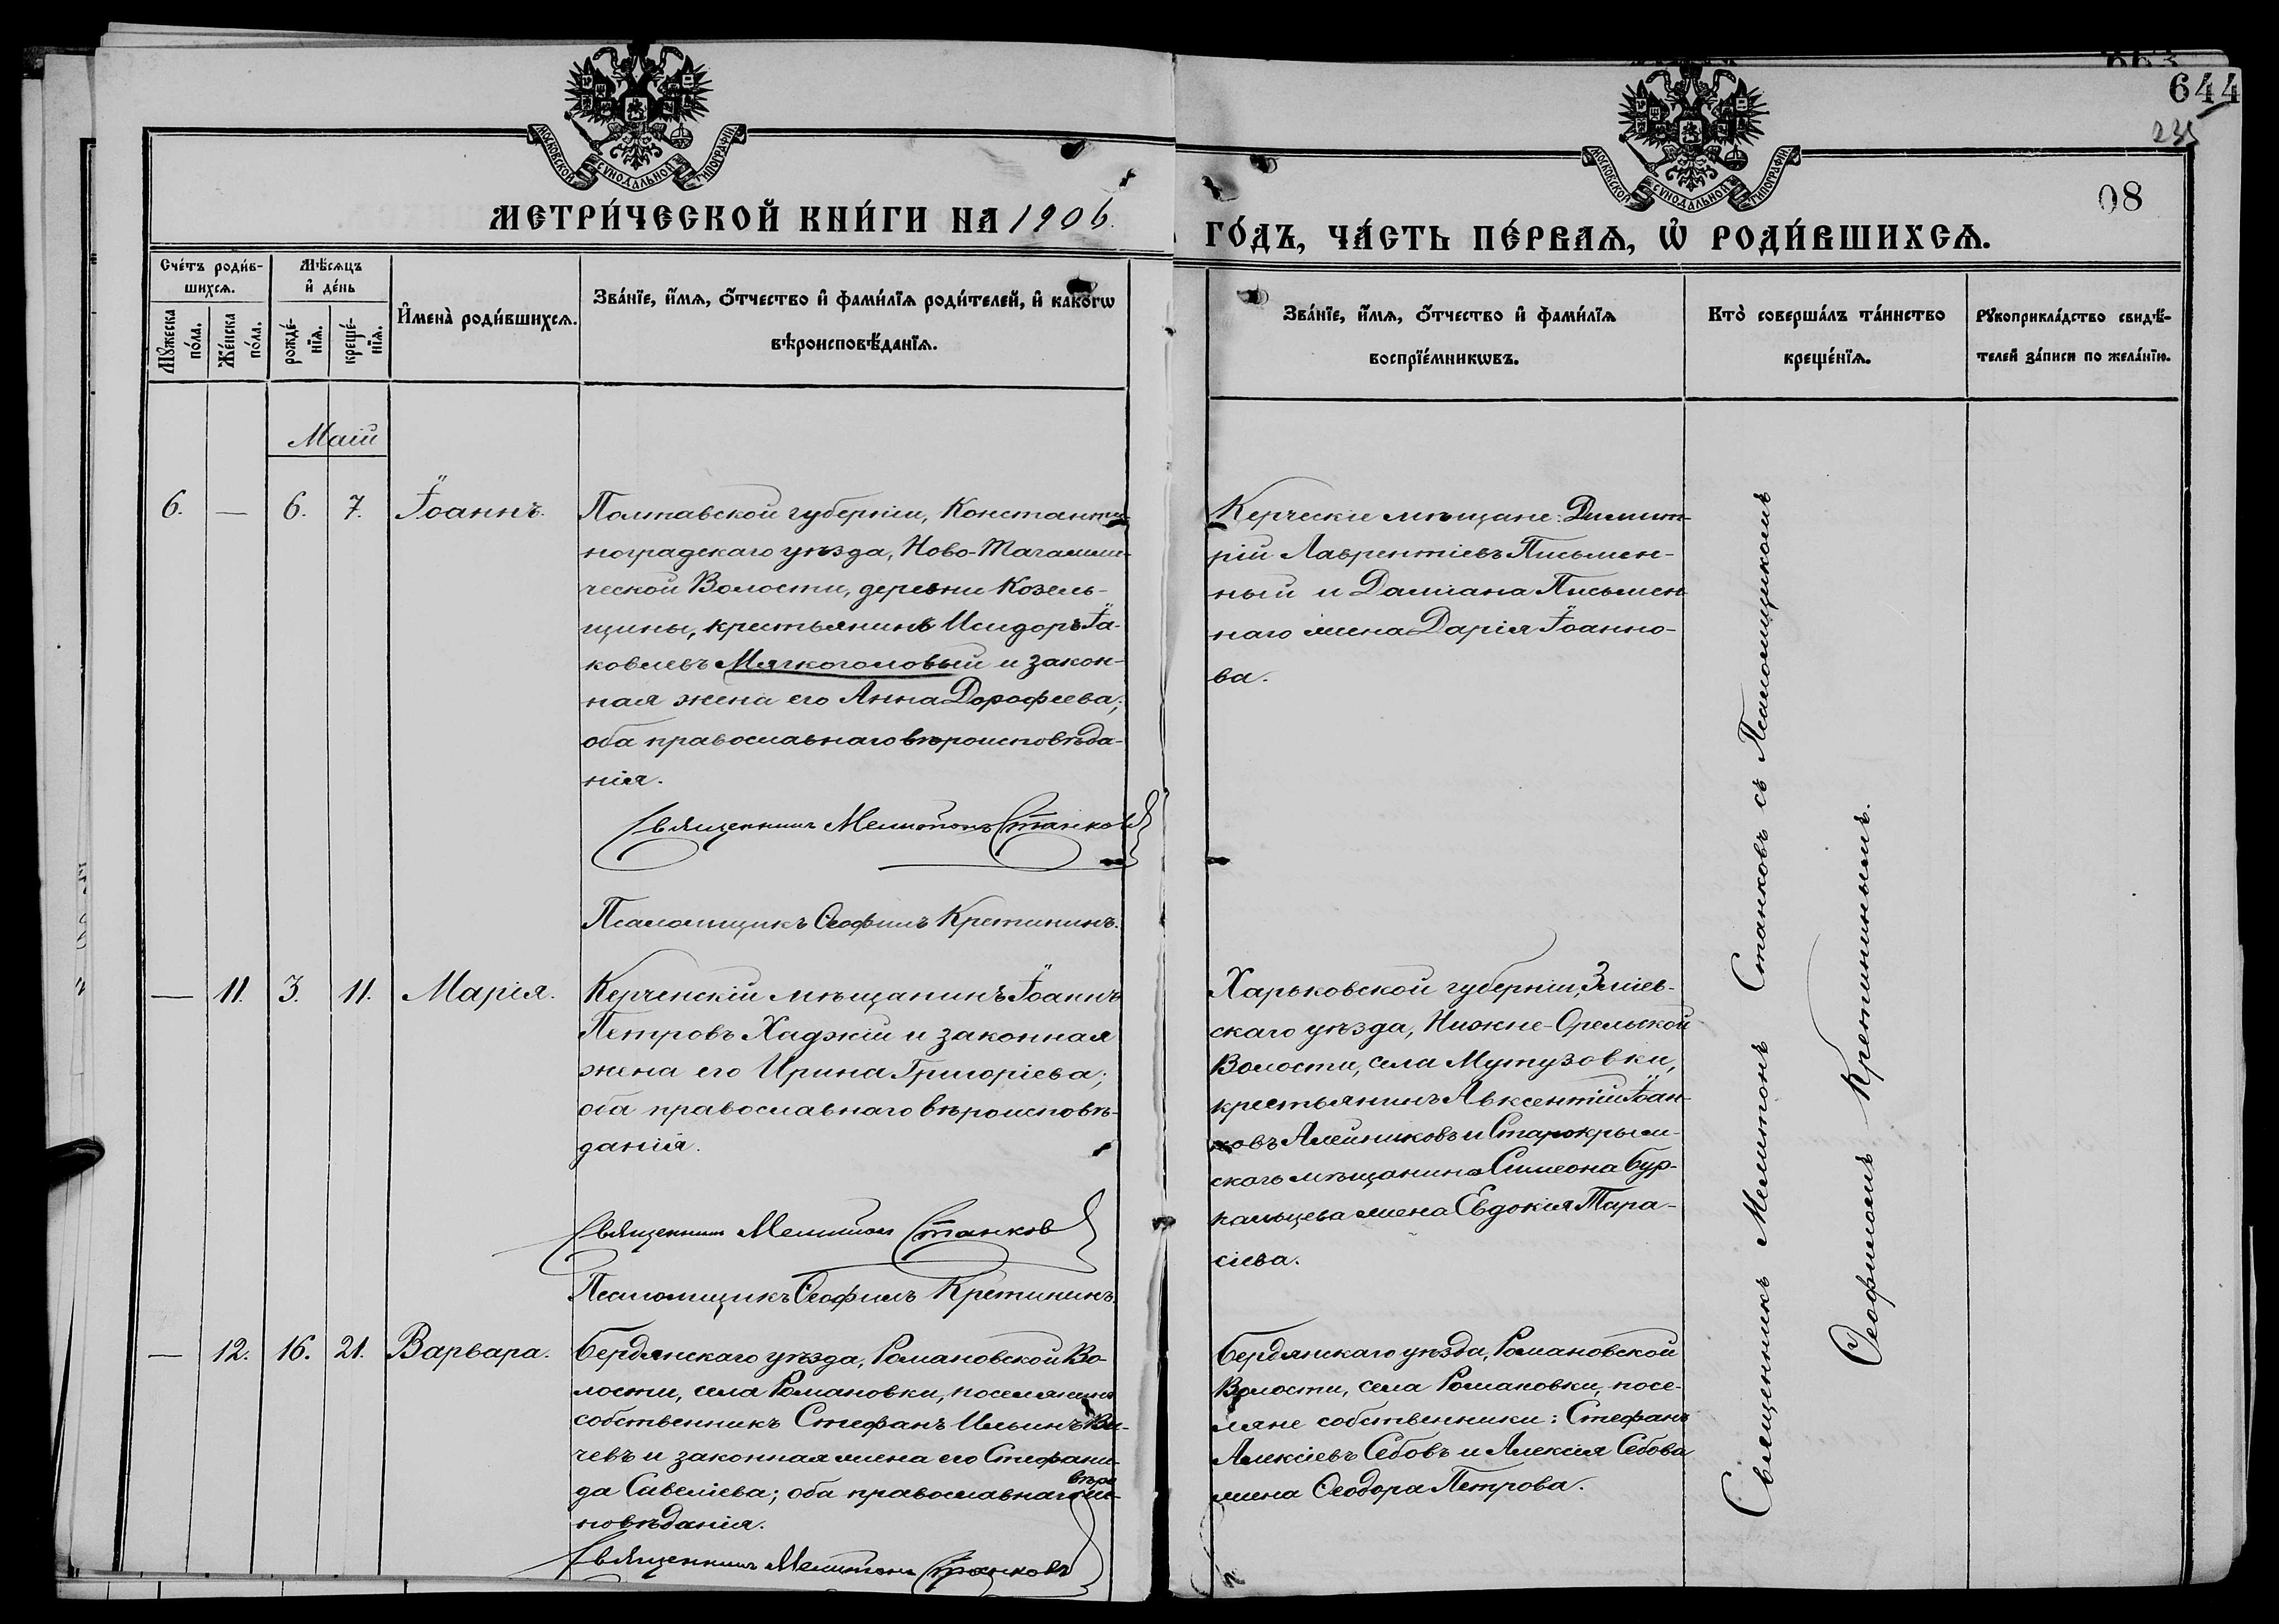 663
644
235
08
МОСКОВСКОЙ СѴНОДАЛЬНОЙ ТИПОГРАФІИ
МОСКОВСКОЙ СѴНОДАЛЬНОЙ ТИПОГРАФІИ
МЕТРИ́ЧЕСКОЙ КНИ́ГИ НА 1906.
ГО́ДЪ, ЧА́СТЬ ПЕ́РВАѦ, Ѡ҆ РОДИ́ВШИХСѦ.
Сче́тъ роди́в-
шихсѧ.
Мѣ́сѧцъ
и҆ де́нь
Мꙋ́жеска
по́ла.
Же́нска
по́ла.
рожде́-
нїѧ.
креще́-
нїѧ.
И҆мена̀ роди́вшихсѧ.
Зва́нїе, и҆́мѧ, ѻ҆́тчество и҆ фами́лїѧ роди́телей, и҆ како́гѡ
вѣроисповѣ́данїѧ.
Зва́нїе, и҆́мѧ, ѻ҆́тчество и҆ фами́лїѧ
воспрїе́мникѡвъ.
Кто̀ соверша́лъ та́инство
креще́нїѧ.
Рꙋкоприкла́дство свидѣ́-
телей за́писи по жела́нїю.
Маій
6. — 6. 7. Іоаннъ.
Полтавской губерніи, Константи-
ноградскаго уѣзда, Ново-Тагамли-
ческой Волости, деревни Козель-
щины, крестьянинъ Исидоръ Іа-
ковлевъ Мягкоголовый и закон-
ная жена его Анна Дорофеева;
оба православнаго вѣроисповѣда-
нія.
Священникъ Мелитонъ Станковъ
Псаломщикъ Ѳеофилъ Кретининъ.
Керческіе мѣщане: Димит-
рій Лаврентіевъ Письмен-
ный и Даміана Письмен-
наго жена Дарія Іоанно-
ва.
— 11. 3. 11. Марія.
Керченскій мѣщанинъ Іоаннъ
Петровъ Хаджій и законная
жена его Ирина Григоріева;
оба православнаго вѣроисповѣ-
данія.
Священникъ Мелитонъ Станковъ
Псаломщикъ Ѳеофилъ Кретининъ.
Харьковской губерніи, Зміев-
скаго уѣзда, Нижне-Орельской
Волости, села Мутузовки,
крестьянинъ Авксентій Іоан-
новъ Алейниковъ и Старокрым-
скаго мѣщанина Симеона Бур-
кальцева жена Евдокія Тара-
сіева.
— 12. 16. 21. Варвара.
Бердянскаго уѣзда, Романовской Во-
лости, села Романовки, поселянинъ
собственникъ Стефанъ Ильинъ
чевъ и законная жена его Стефани-
да Савеліева; оба православнаго вѣро ис-
повѣданія.
Священникъ Мелитонъ Станковъ
Бердянскаго уѣзда, Романовской
Волости, села Романовки, посе-
ляне собственники: Стефанъ
Алексіевъ Себовъ и Алексія Себова
жена Ѳеодора Петрова.
Священникъ Мелитонъ Станковъ съ Псаломщикомъ
Ѳеофиломъ Кретининымъ.